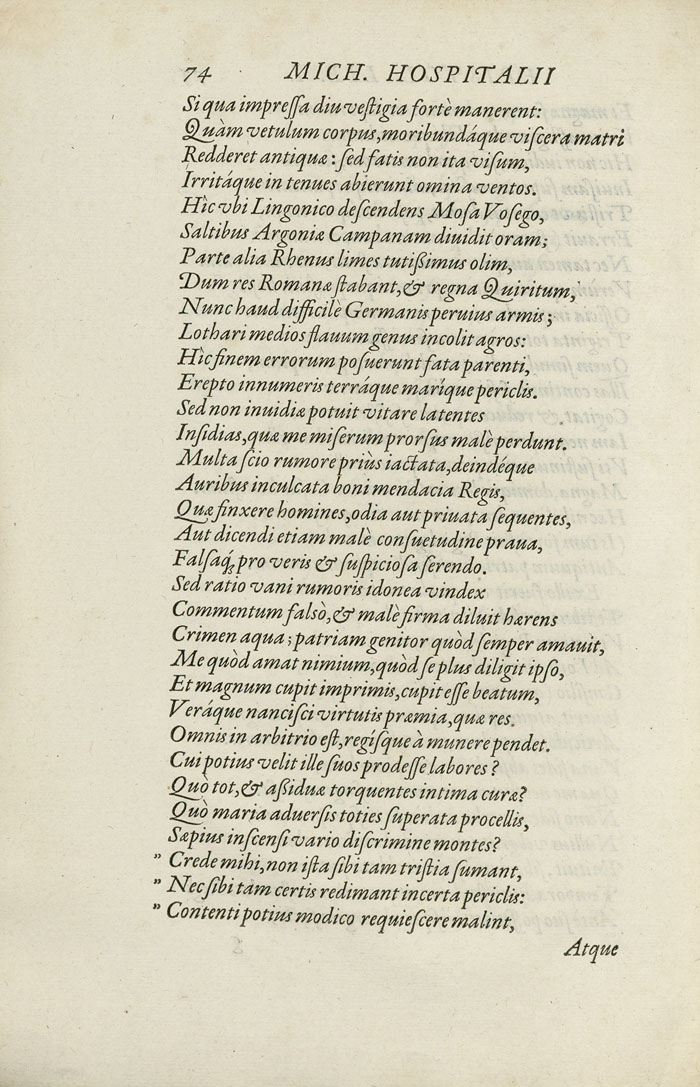 74 MICH. HOSPITALII
Si qua impreſſa diu veſtigia fortè manerent:
Quàm vetulum corpus, moribundáque viſcera matri
Redderet antiquæ: ſed fatis non ita viſum,
Irritáque in tenues abierunt omina ventos.
Hîc vbi Lingonico deſcendens Moſa Voſego,
Saltibus Argoniæ Campanam diuidit oram;
Parte alia Rhenus limes tutißimus olim,
Dum res Romanæ ſtabant, & regna Quiritum,
Nunc haud difficilè Germanis peruius armis;
Lothari medios flauum genus incolit agros:
Hîc finem errorum poſuerunt fata parenti,
Erepto innumeris terráque maríque periclis.
Sed non inuidiæ potuit vitare latentes
Inſidias, quæ me miſerum prorſus malè perdunt.
Multa ſcio rumore priùs iactata, deindéque
Auribus inculcata boni mendacia Regis,
Quæ finxere homines, odia aut priuata ſequentes,
Aut dicendi etiam malè conſuetudine praua,
Falſaq́; pro veris & ſuſpicioſa ſerendo.
Sed ratio vani rumoris idonea vindex
Commentum falsò, & malè firma diluit hærens
Crimen aqua; patriam genitor quòd ſemper amauit,
Me quòd amat nimium, quòd ſe plus diligit ipſo,
Et magnum cupit imprimis, cupit eſſe beatum,
Veráque nanciſci virtutis præmia, quæ res.
Omnis in arbitrio eſt, regíſque à munere pendet.
Cui potius velit ille ſuos prodeſſe labores?
Quò tot, & aßiduæ torquentes intima curæ?
Quò maria aduerſis toties ſuperata procellis,
Sæpius inſcenſi vario diſcrimine montes?
" Crede mihi, non iſta ſibi tam triſtia ſumant,
" Nec ſibi tam certis redimant incerta periclis:
" Contenti potius modico requieſcere malint,
Atque